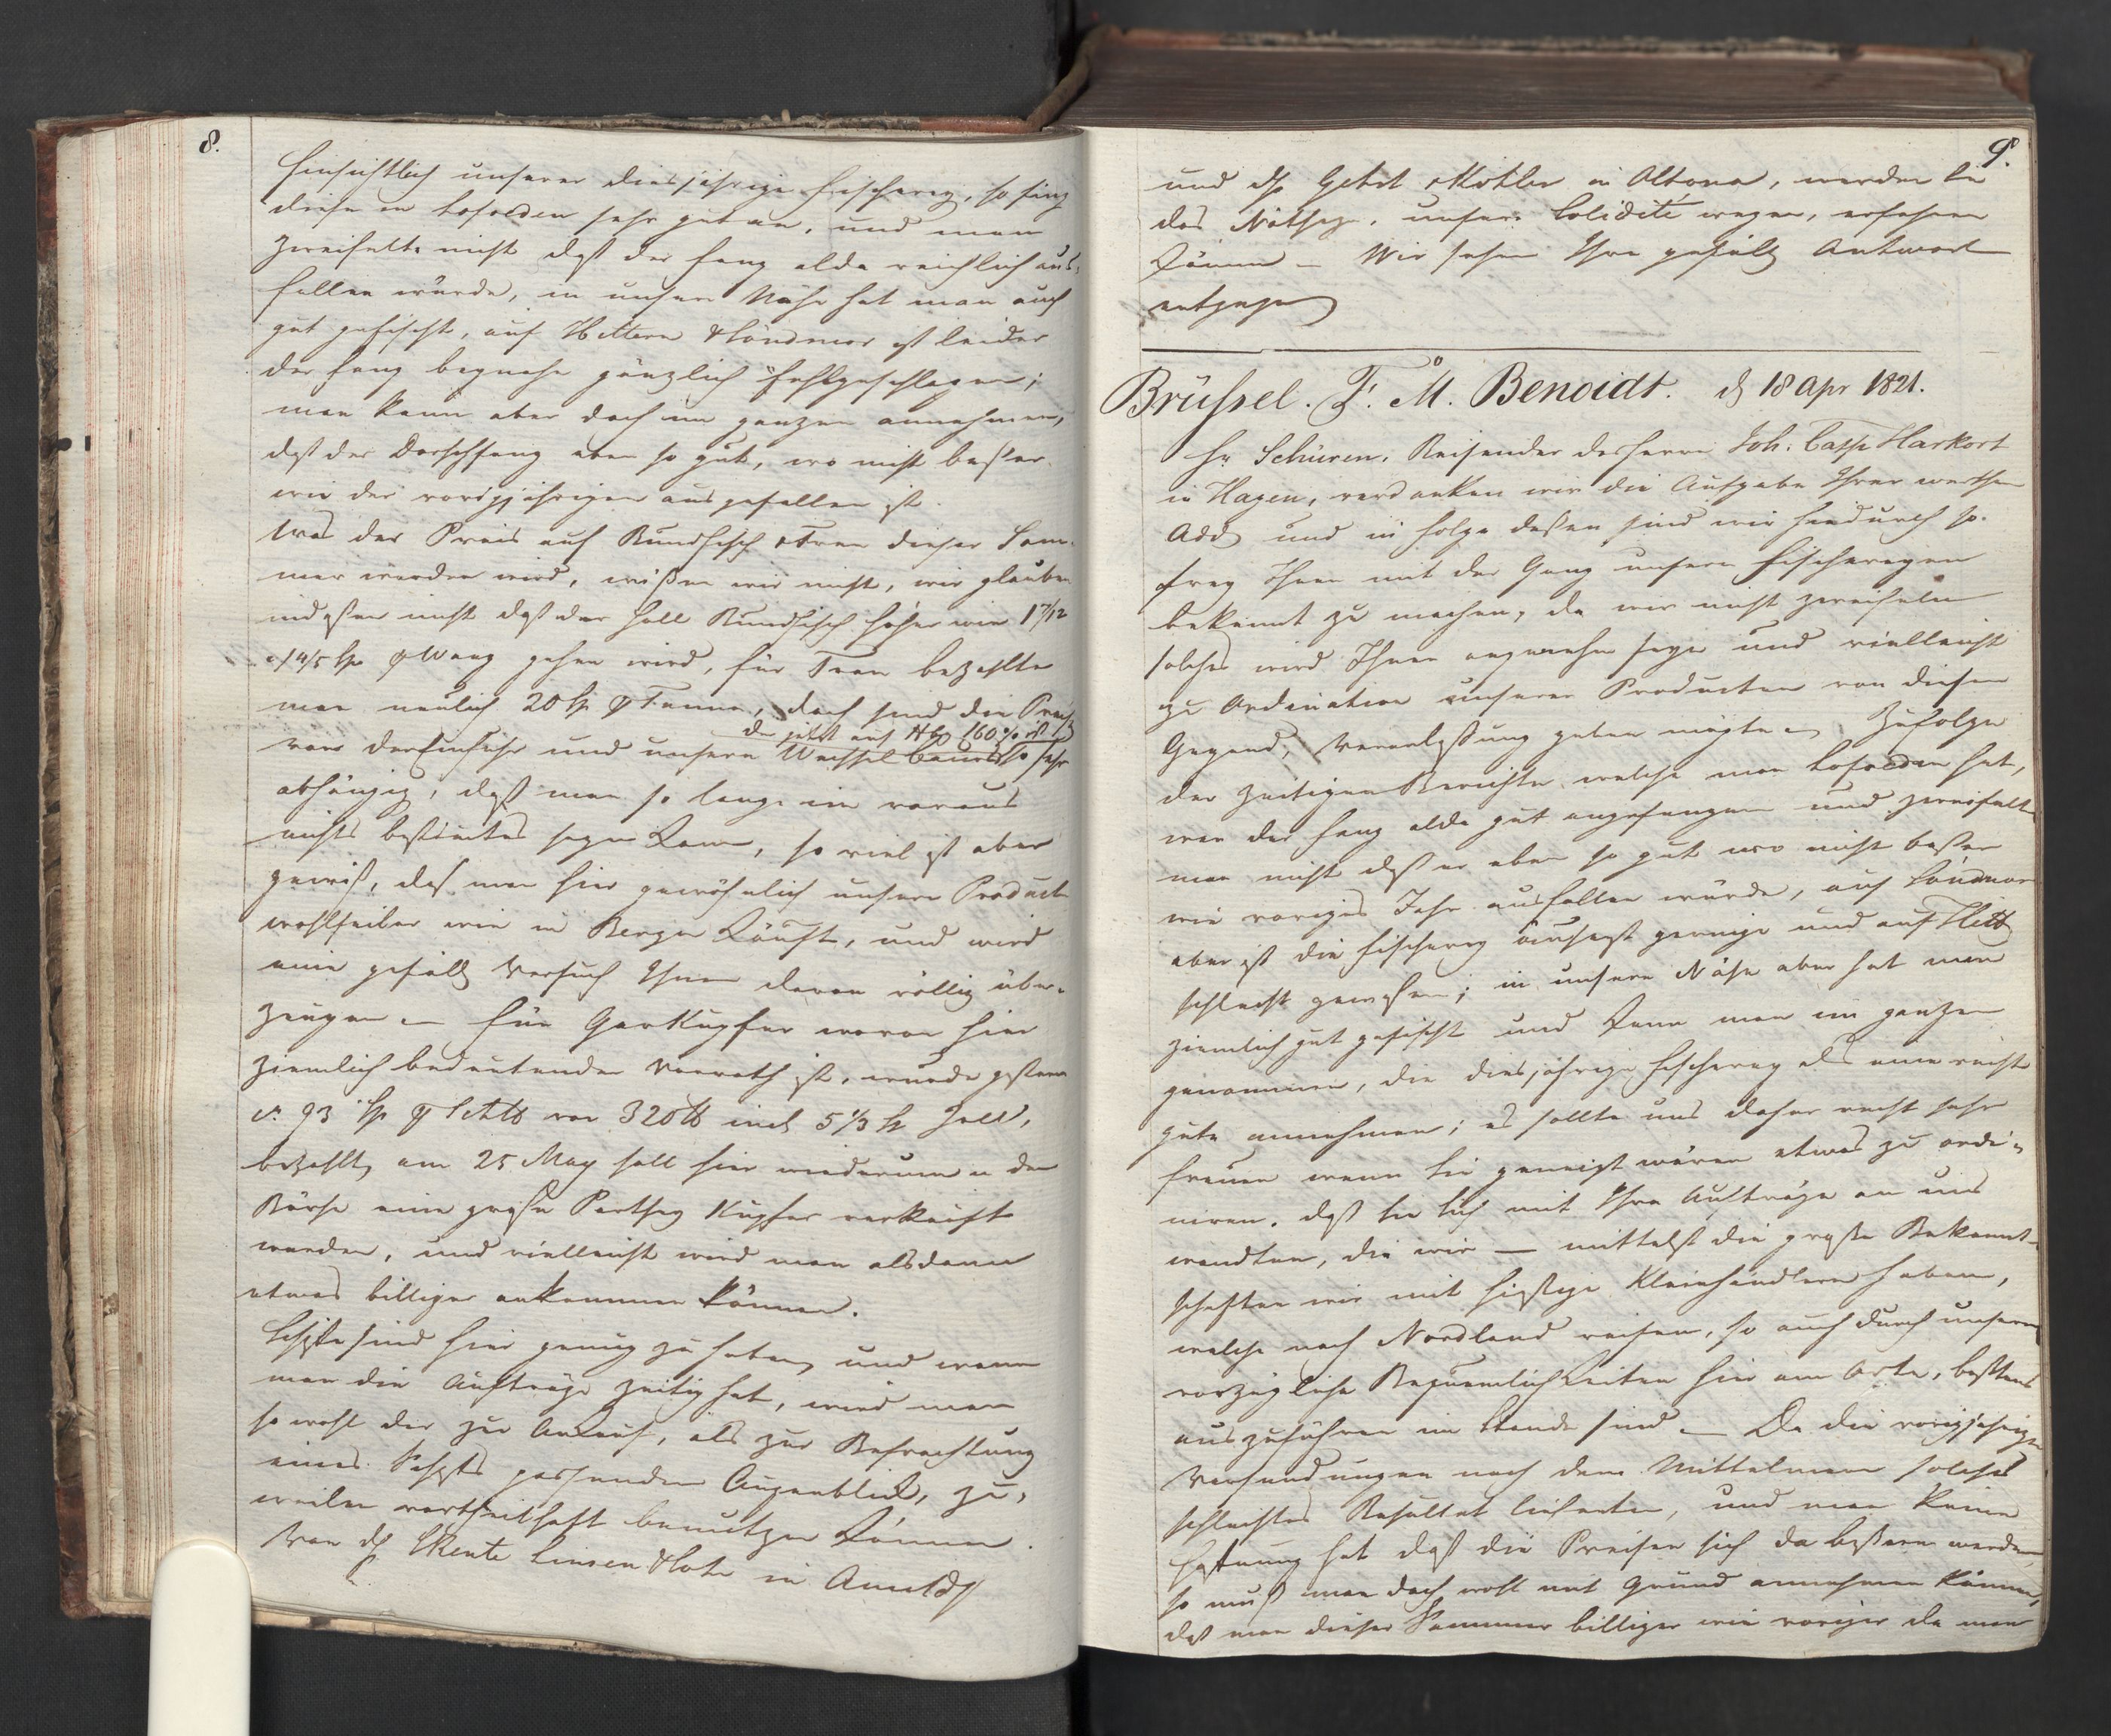 8.
Hinsichtlich unserer diesjährige Fischerey, so fing
diese in Lofodden sehr gut an, und man
zweifelte nicht daß der Fang alda reichlich aus-
fallen würde, in unsere Nähe hat man auch
gut gefischt, auf Hittern & Söndmör ist leider
der Fang beynahe gänzlich fehlgeschlagen;
man kann aber doch im ganzen annehmen,
daß der Dorschfang eben so gut, wo nicht besser
wie der vorigjährigen ausgefallen ist.
Was der Preis auf Rundfisch & Tran dieser Som-
mer werden wird, wissen wir nicht, wir glauben
indessen nicht daß der Rundfisch höher wie 17/12
14/5 Sp Waag gehen wird, für Tran bezahlte
man neulich 20 Sp Tonne, doch sind die Preise
der jetzt auf Hbg 160 % ist
von der Einfuhr und unsern Wechsel Cours so sehr
abhängig, daß man so lange im voraus
nichts bestimtes sagen kann, so viel ist aber
gewiß, das man hier gewöhnlich unsere Producte
wohlfeiler wie in Bergen käuft, und wird
eine gefällg Versuch Ihnen davon völlig über-
zeugen – Für Garkupfer wovon hier
ziemlich bedeutender Vorrath ist, wurde gestern
93 Sp Schtt von 320 tt incl 5 1/3 Sp Zoll,
bezahlt, am 25 May soll hier wiederum a der
Börse eine große Parthey Kupfer verkauft
werden, und vielleicht wird man alsdann
etwas billiger ankommen können.
Schiffe sind hier genug zu haben, und wenn
man die Aufträge zeitig hat, wird man
so wohl der zur Ankauf, als zur Befrachtung
eines Schiffs passenden Augenblick, zu-
weilen vortheilhaft benutzen können.
Von Linsen in

9.
und Gebr Köhler in Altona, werden Sie
das Nöthige, unsere Solidité wegen, erfahren
können – Wir sehen Ihre gefällg Antwort
entgegen
Brüssel. F. M. Benoidt. d 18 Apr 1821.
Hr. Schüren, Reisender des Herrn Joh. Casp Harkort
in Hagen, verdanken wir die Aufgabe Ihrer werthen
Add und in Folge dessen sind wir hiedurch so
frey Ihnen mit der Gang unsern Fischereyen
bekannt zu machen, da wir nicht zweifeln
solches wird Ihnen angenehm seyn und vielleicht
zu Ordination unserer Producten von diesen
Gegend, Veranlaßung geben mögte – Zufolge
der zeitigen Berichte welche man Lofodden hat,
war der Fang alda gut angefangen und zweifelte
man nicht daß er eben so gut wo nicht besser
wie voriges Jahr ausfallen würde, auf Söndmör
aber ist die Fischerey äuserst geringe und auf Hitt
schlecht gewesen; in unsere Nähe aber hat man
ziemlich gut gefischt und kann man im ganzen
genommen, die diesjährige Fischerey als eine recht
gute annehmen; es sollte uns daher recht sehr
freuen wenn Sie geneigt wären etwas zu ordi-
niren, daß Sie sich mit Ihre Aufträge an uns
wendten, die wir – mittelst die große Bekannt-
schaften wir mit hiesige Kleinhändlern haben,
welche nach Nordland reisen, so auch durch unsern
vorzügliche Bequemlichkeiten hier am Orte, bestens
auszuführen im Stande sind – Da die vorigjährige
Versendungen nach dem Mittelmeer solches
schlechtes Resultat lieferten, und man keine
Hoffnung hat daß die Preisen sich da bessern werden,
so muß man doch wohl mit Grund annehmen können,
daß man dieser Sommer billiger wie voriger da man